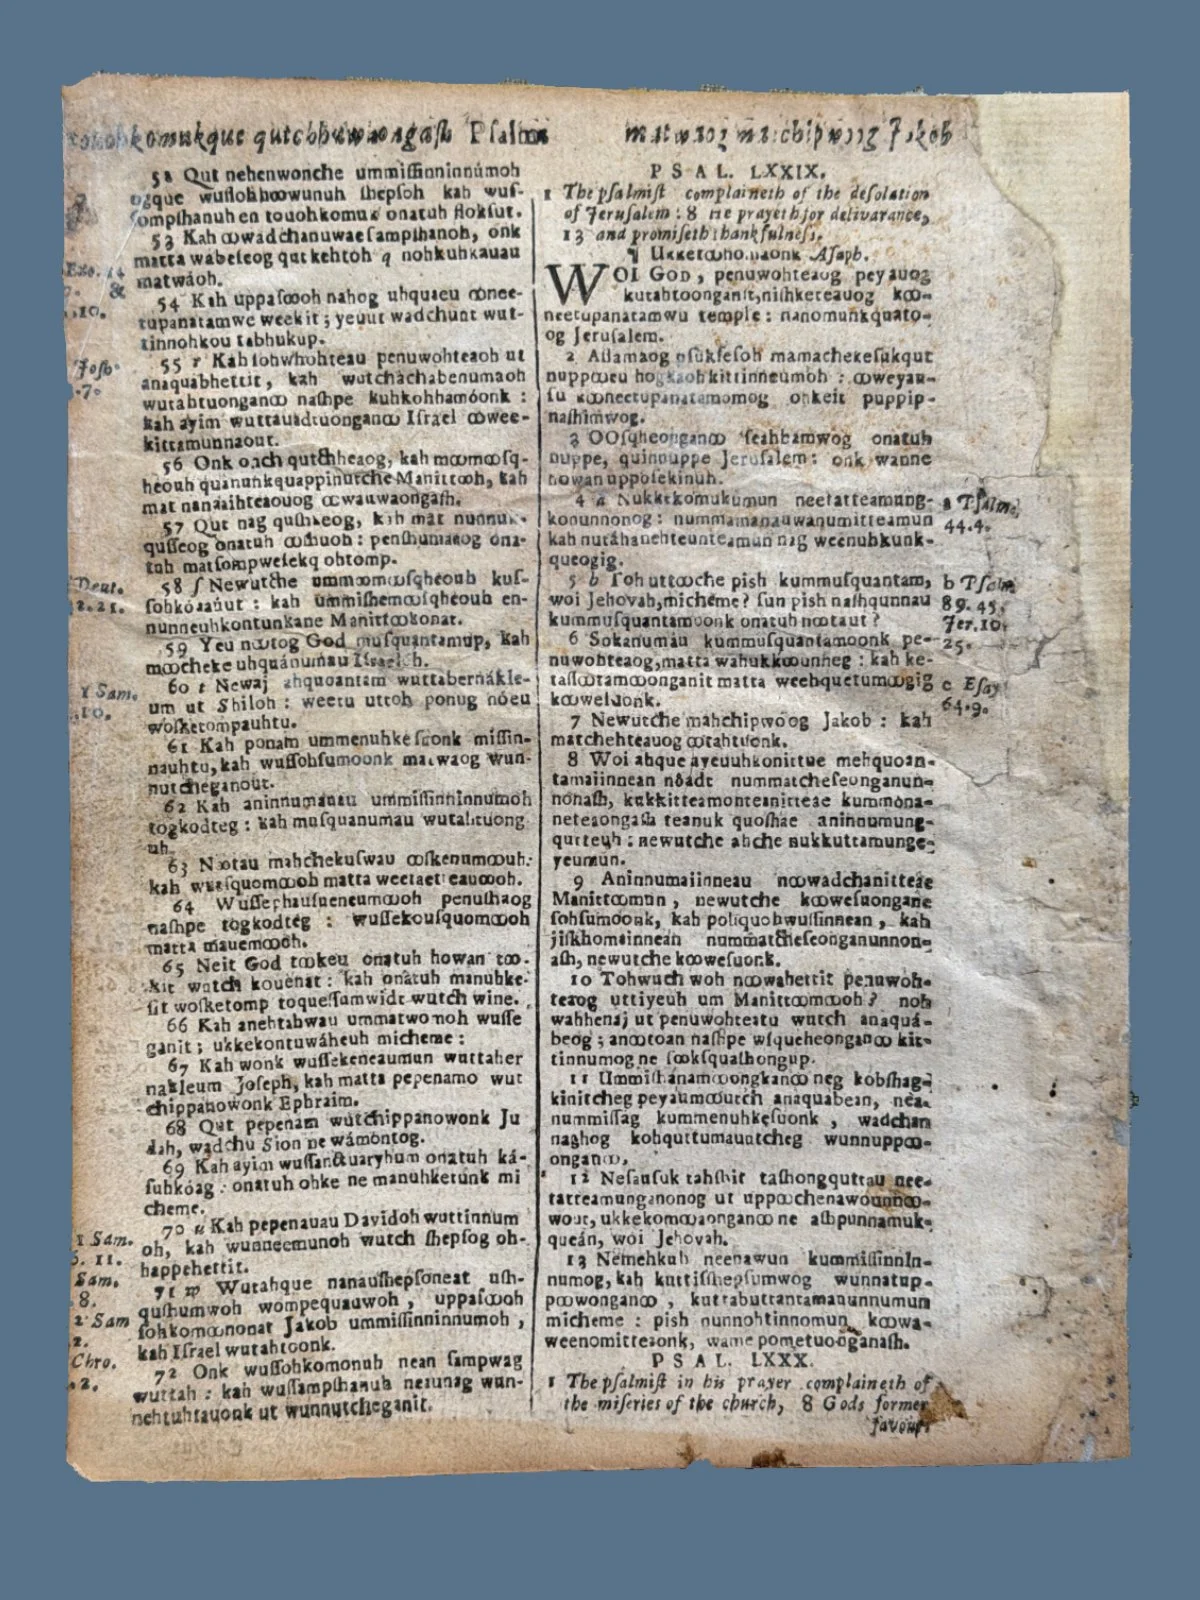 komukque qutchhuwaongash Psalms matwaog machipwoog Jakob
52 Qut nehenwonche ummissinninnúmoh
ogque wuſſohhoowunuh ſhepſoh kah wuſ-
ſompſhanuh en touohkomuk onatuh flokſut.
53 Kah ꝏwadchanuwae ſampſhanoh, onk
matta wabeſeog qut kehtoh q nohkuhkauau
matwáoh.
54 Kah uppaſꝏoh nahog uhquaeu ꝏnee-
tupanatamwe weekit; yeuut wadchunt wut-
tinnohkou tabhukup.
55 r Kah ſohwhohteau penuwohteaoh ut
anaquabhettit, kah wutchachabenumaoh
wutahtuonganꝏ naſhpe kuhkohhamóonk :
kah ayim wuttauadtuonganꝏ Iſrael ꝏwee-
kittamunnaout.
56 Onk qutchheaog, kah mꝏmꝏſq-
heouh quanunkquappinutche Manittꝏh, kah
mat nanaaihteaouog ꝏwauwaongaſh.
57 Qut nag quſhkeog, kah mat nunnuk-
quſſeog onatuh ꝏſhuoh : penſhumaeog ona-
tuh matſompweſekq ohtomp.
58 ſ Newutche ummꝏmꝏſqheouh kuſ-
ſohkóaaúut : kah ummiſhemꝏſqheouh en-
nunneuhkontunkane Manittꝏkonat.
59 Yeu nꝏtog God muſquantamup, kah
mꝏcheke uhquánumau Iſraeloh.
60 t Newaj ahquoantam wuttabernákle-
um ut Shiloh : weetu uttoh ponug nóeu
woſketompauhtu.
61 Kah ponam ummenuhkeſuonk miſſin-
nauhtu, kah wuſſohſumoonk matwaog wun-
nutcheganout.
62 Kah aninnumauau ummiſſinninnumoh
togkodteg : kah muſquanumau wutahtuong
uh.
63 Nꝏtau mahchekuſwau ꝏſkenumꝏuh:
kah wuſquomꝏoh matta weetaetteauꝏoh.
64 Wuſſephauſueneumꝏoh penuſhaog
naſhpe togkodteg : wuſſekouſquomꝏoh
matta mauemꝏoh.
65 Neit God tꝏkeu onatuh howan tꝏ-
kit wutch kouenat : kah onatuh manuhke-
ſit woſketomp toqueſſumwide wutch wine.
66 Kah anehtahwau ummatwomoh wuſſe
ganit ; ukkekontuwáheuh micheme :
67 Kah wonk wuſſekeneaumun wuttaber
nakleum Joſeph, kah matta pepenamo wut
chippanowonk Ephraim.
68 Qut pepenam wutchippanowonk Ju
dah, wadchu Sion ne wámontog.
69 Kah ayim wuſſanctuaryhum onatuh ká-
ſuhkóag : onatuh ohke ne manuhketunk mi
cheme.
70 u Kah pepenauau Davidoh wuttinnum
oh, kah wunneemunoh wutch ſhepſog oh-
happehettit.
71 w Wutahque nanauſhepſoneat uſh-
quſhumwoh wompequauwoh , uppaſꝏoh
ſohkomꝏnonat Jakob ummiſſinninnumoh ,
kah Iſrael wutahtoonk.
72 Onk wuſſohkomonuh nean ſampwag
wuttah : kah wuſſampſhanuh netunag wun-
nehtuhtauonk ut wunnutcheganit.
Exo. 14
&
10.
Joſh.
7.
Deut.
2.21.
1 Sam.
10.
1 Sam.
11.
Sam.
8.
2 Sam
2.
Chro.
2.
PSAL. LXXIX.
1 The pſalmiſt complaineth of the deſolation
of Jeruſalem : 8 He prayeth for deliverance,
13 and promiſeth thankfulneſs.
¶ Ukketꝏhomaonk Aſaph.
WOI GOD, penuwohteaog peyauog
kutahtoonganit, niſhketeauog kꝏ-
neetupanatamwu temple : nanomunkquato-
og Jeruſalem.
2 Aſſamaog oſukſeſoh mamachekeſukqut
nuppꝏeu hogkaoh kittinneumoh : ꝏweyau-
ſu kꝏneetupanatamomog onkeit puppip-
naſhimwog.
3 OOſqheonganꝏ ſeahhamwog onatuh
nuppe, quinnuppe Jeruſalem : onk wanne
howan uppoſekinuh.
4 a Nukkekomukumun neetatteamung-
konunnonog : nummamanauwanumitteamun
kah nutáhanehteunteamun nag weenuhkunk-
queogig.
5 b Toh uttꝏche piſh kummuſquantam,
woi Jehovah, micheme? ſun piſh naſhqunnau
kummuſquantamoonk onatuh nꝏtaut ?
6 Sokanumáu kummuſquantamoonk pe-
nuwohteaog, matta wahukkꝏunheg : kah ke-
taſſꝏtamꝏonganit matta weehquetumꝏgig
kꝏweſuonk.
7 Newutche mahchipwoog Jakob : kah
matchehteauog ꝏtahtuonk.
8 Woi ahque ayeuuhkonittue mehquoan-
tamaiinnean nôadt nummatcheſeonganun-
nonaſh, kukkitteamonteanitteae kummóna-
neteaongaſh teanuk quoſhae aninnumung-
qutteuh : newutche ahche nukkuttamunge-
yeumun.
9 Aninnumaiinneau nꝏwadchanitteae
Manittꝏmun , newutche kꝏweſuongane
ſohſumoonk, kah pohquohwuſſinnean , kah
jiſkhomainnean nummatcheſeonganunnon-
aſh, newutche kꝏweſuonk.
10 Tohwuch woh nꝏwahettit penuwoh-
teaog uttiyeuh um Manittꝏmꝏoh ? noh
wahhenaj ut penuwohteatu wutch anaquá-
beog ; anꝏtoan naſhpe wſqueheonganꝏ kit-
tinnumog ne ſokſquaſhongup.
11 Ummiſhanamꝏongkanꝏ neg kobſhag-
kinitcheg peyaumꝏutch anaquabean, nea-
nummiſſag kummenuhkeſuonk , wadchan
naghog kohquttumauatcheg wunnuppꝏ-
onganꝏ.
12 Neſauſuk tahſhit taſhongquttau nee-
tatteamunganonog ut uppꝏchenawounnꝏ-
wout, ukkekomꝏaonganꝏ ne aſhpunnamuk-
queán, woi Jehovah.
13 Nemehkuh neenawun kummiſſinnin-
numog, kah kuttiſſhepſumwog wunnatup-
pꝏwonganꝏ , kuttabuttantamanunnumun
micheme : piſh nunnohtinnomun kꝏwa-
weenomitteaonk, wame pometuoonganaſh.
PSAL. LXXX.
1 The pſalmiſt in his prayer complaineth of
the miſeries of the church, 8 Gods former
favours
a Pſalm.
44.4.
b Pſalm.
89.45.
Jer.10.
25.
c Eſay
64.9.